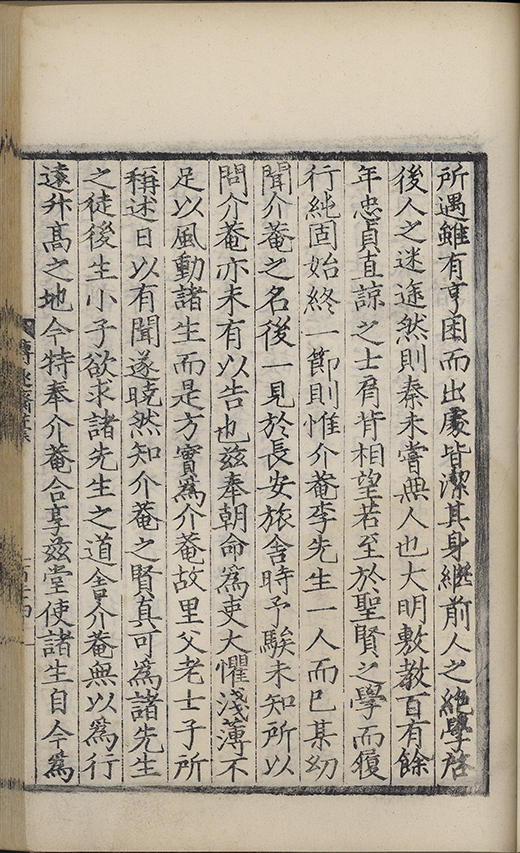 所遇雖有亨困而出處皆潔其身繼前人之絶學啓
後人之迷途然則秦未嘗無人也大明敷教百有餘
年忠貞直諒之士肩背相望若至於聖賢之學而履
行純固始終一節則惟介菴李先生一人而已某幼
聞介菴之名後一見於長安旅舍時予騃未知所以
問介菴亦未有以告也兹奉朝命爲吏大懼淺薄不
足以風動諸生而是方實爲介菴故里父老士子所
稱述日以有聞遂曉然知介菴之賢真可爲諸先生
之徒後生小子欲求諸先生之道舎介菴無以爲行
遠升髙之地今特奉介菴合享兹堂使諸生自今爲